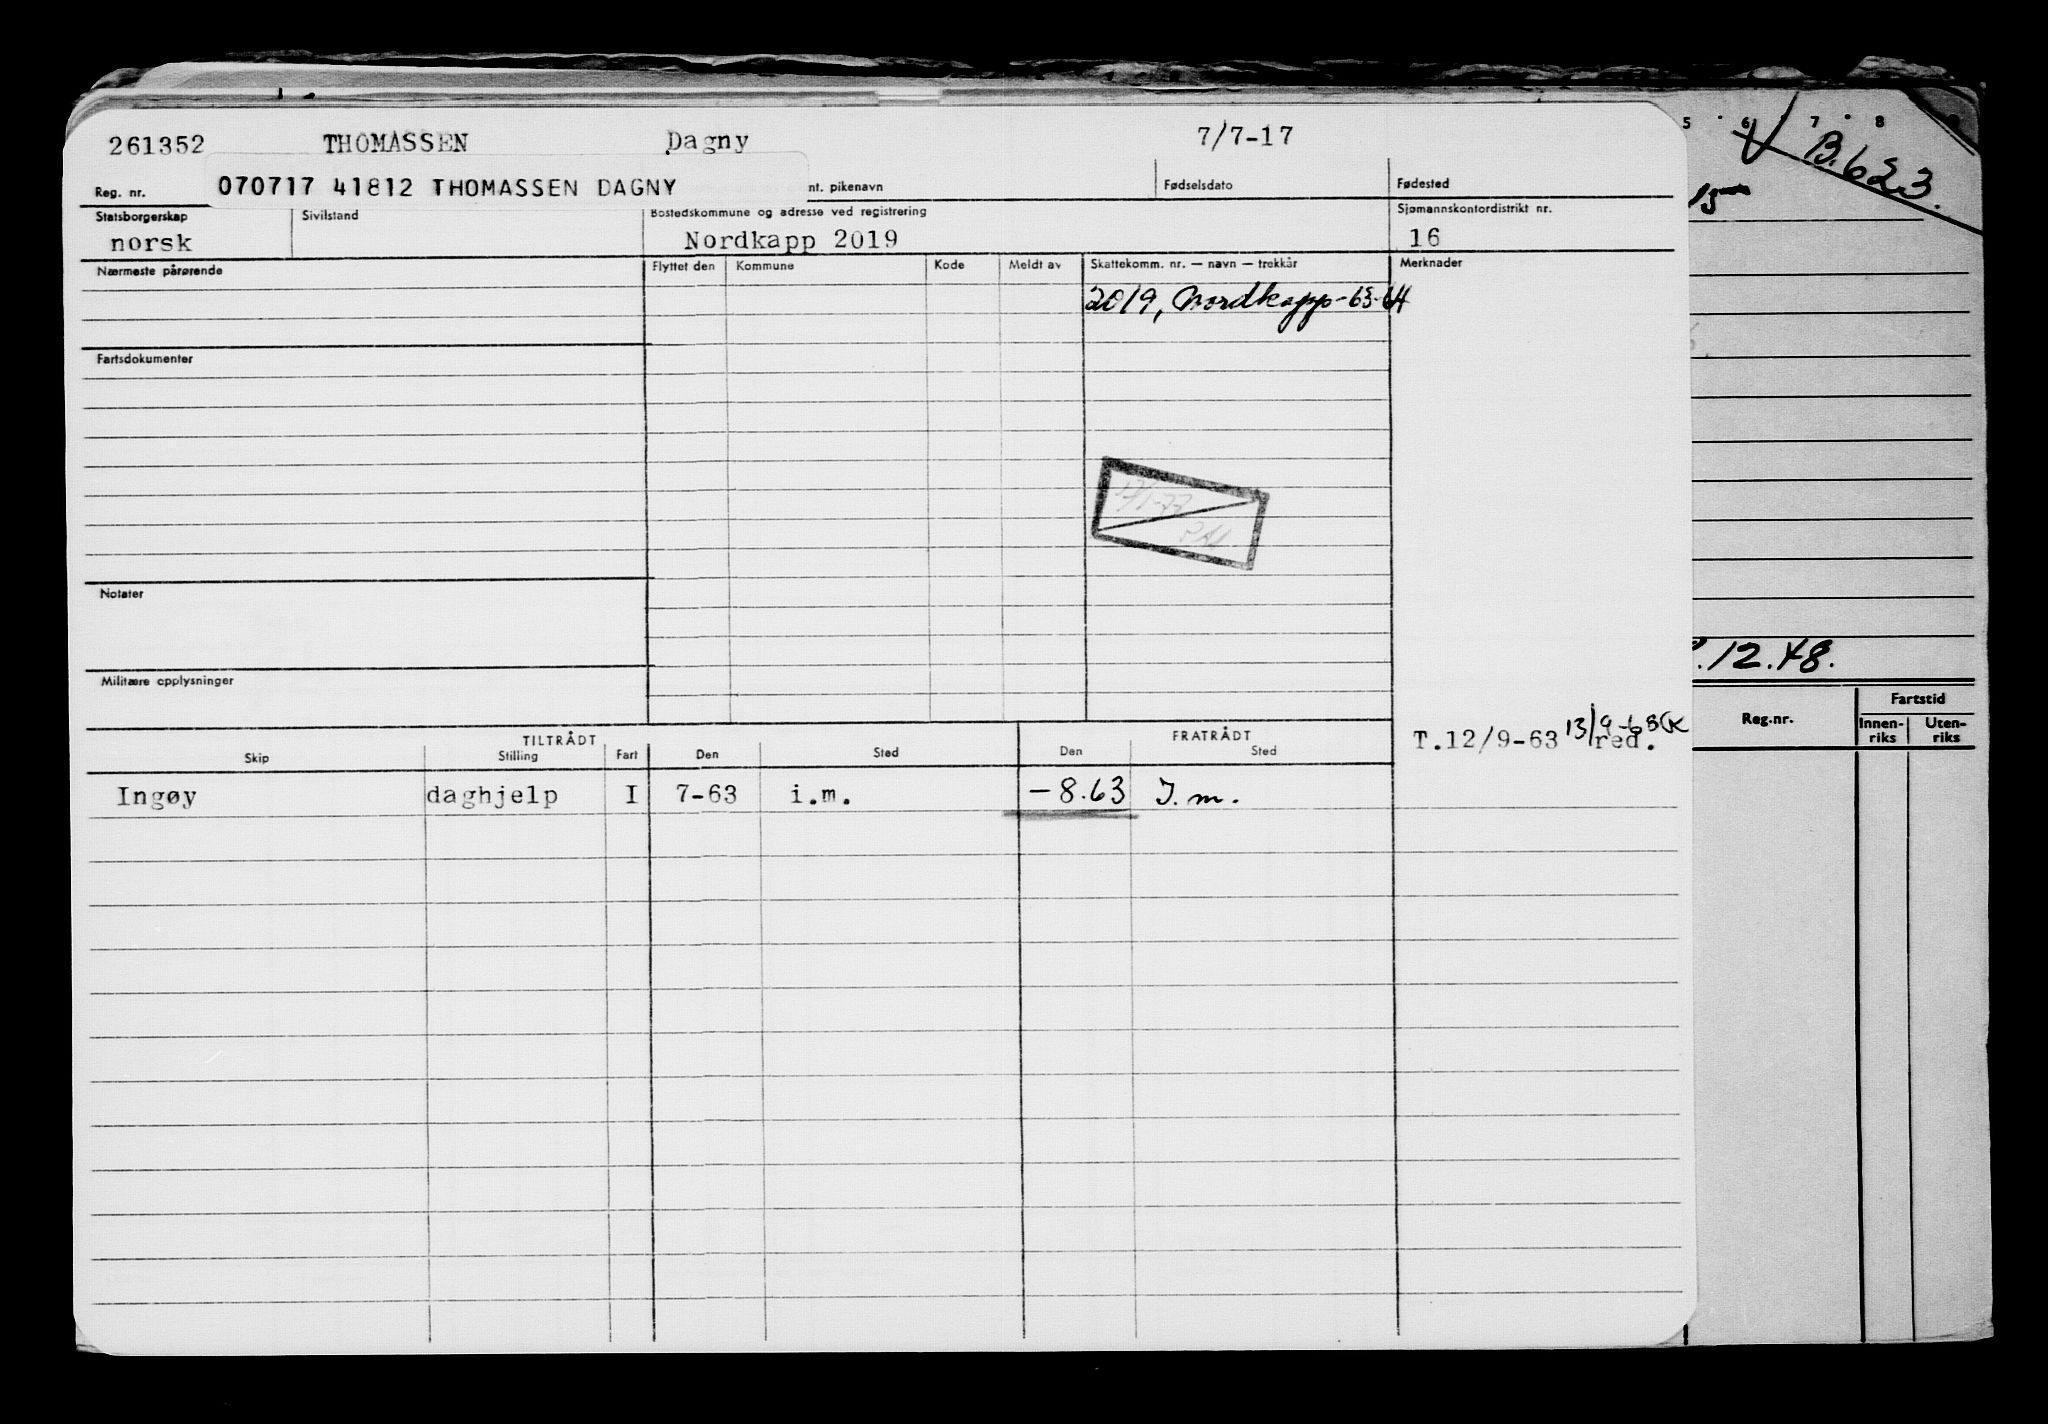 261352 THOMASSEN Dagny 7/7-17
Reg. nr. 070717 41812 THOMASSEN DAGNY nt. pikenavn Fødselsdato Fødested
Statsborgerskap Sivilstand Bostedskommune og adresse ved registrering Sjømannskontordistrikt nr.
norsk Nordkapp 2019 16
Nærmeste pårørende Flyttet den Kommune Kode Meldt av Skattekomm. nr. — navn — trekkår Merknader
2019, Nordkapp-63-64
Fartsdokumenter
Notater
Militære opplysninger
TILTRÅDT FRATRÅDT
T.12/9-63 13/9-63 red.
Skip Stilling Fart Den Sted Den Sted
Ingøy daghjelp I 7-63 i.m. -8.63 I.m.
5 6 7 8
B.623.
.12.48.
Reg.nr. Fartstid
Innen- Uten-
riks riks